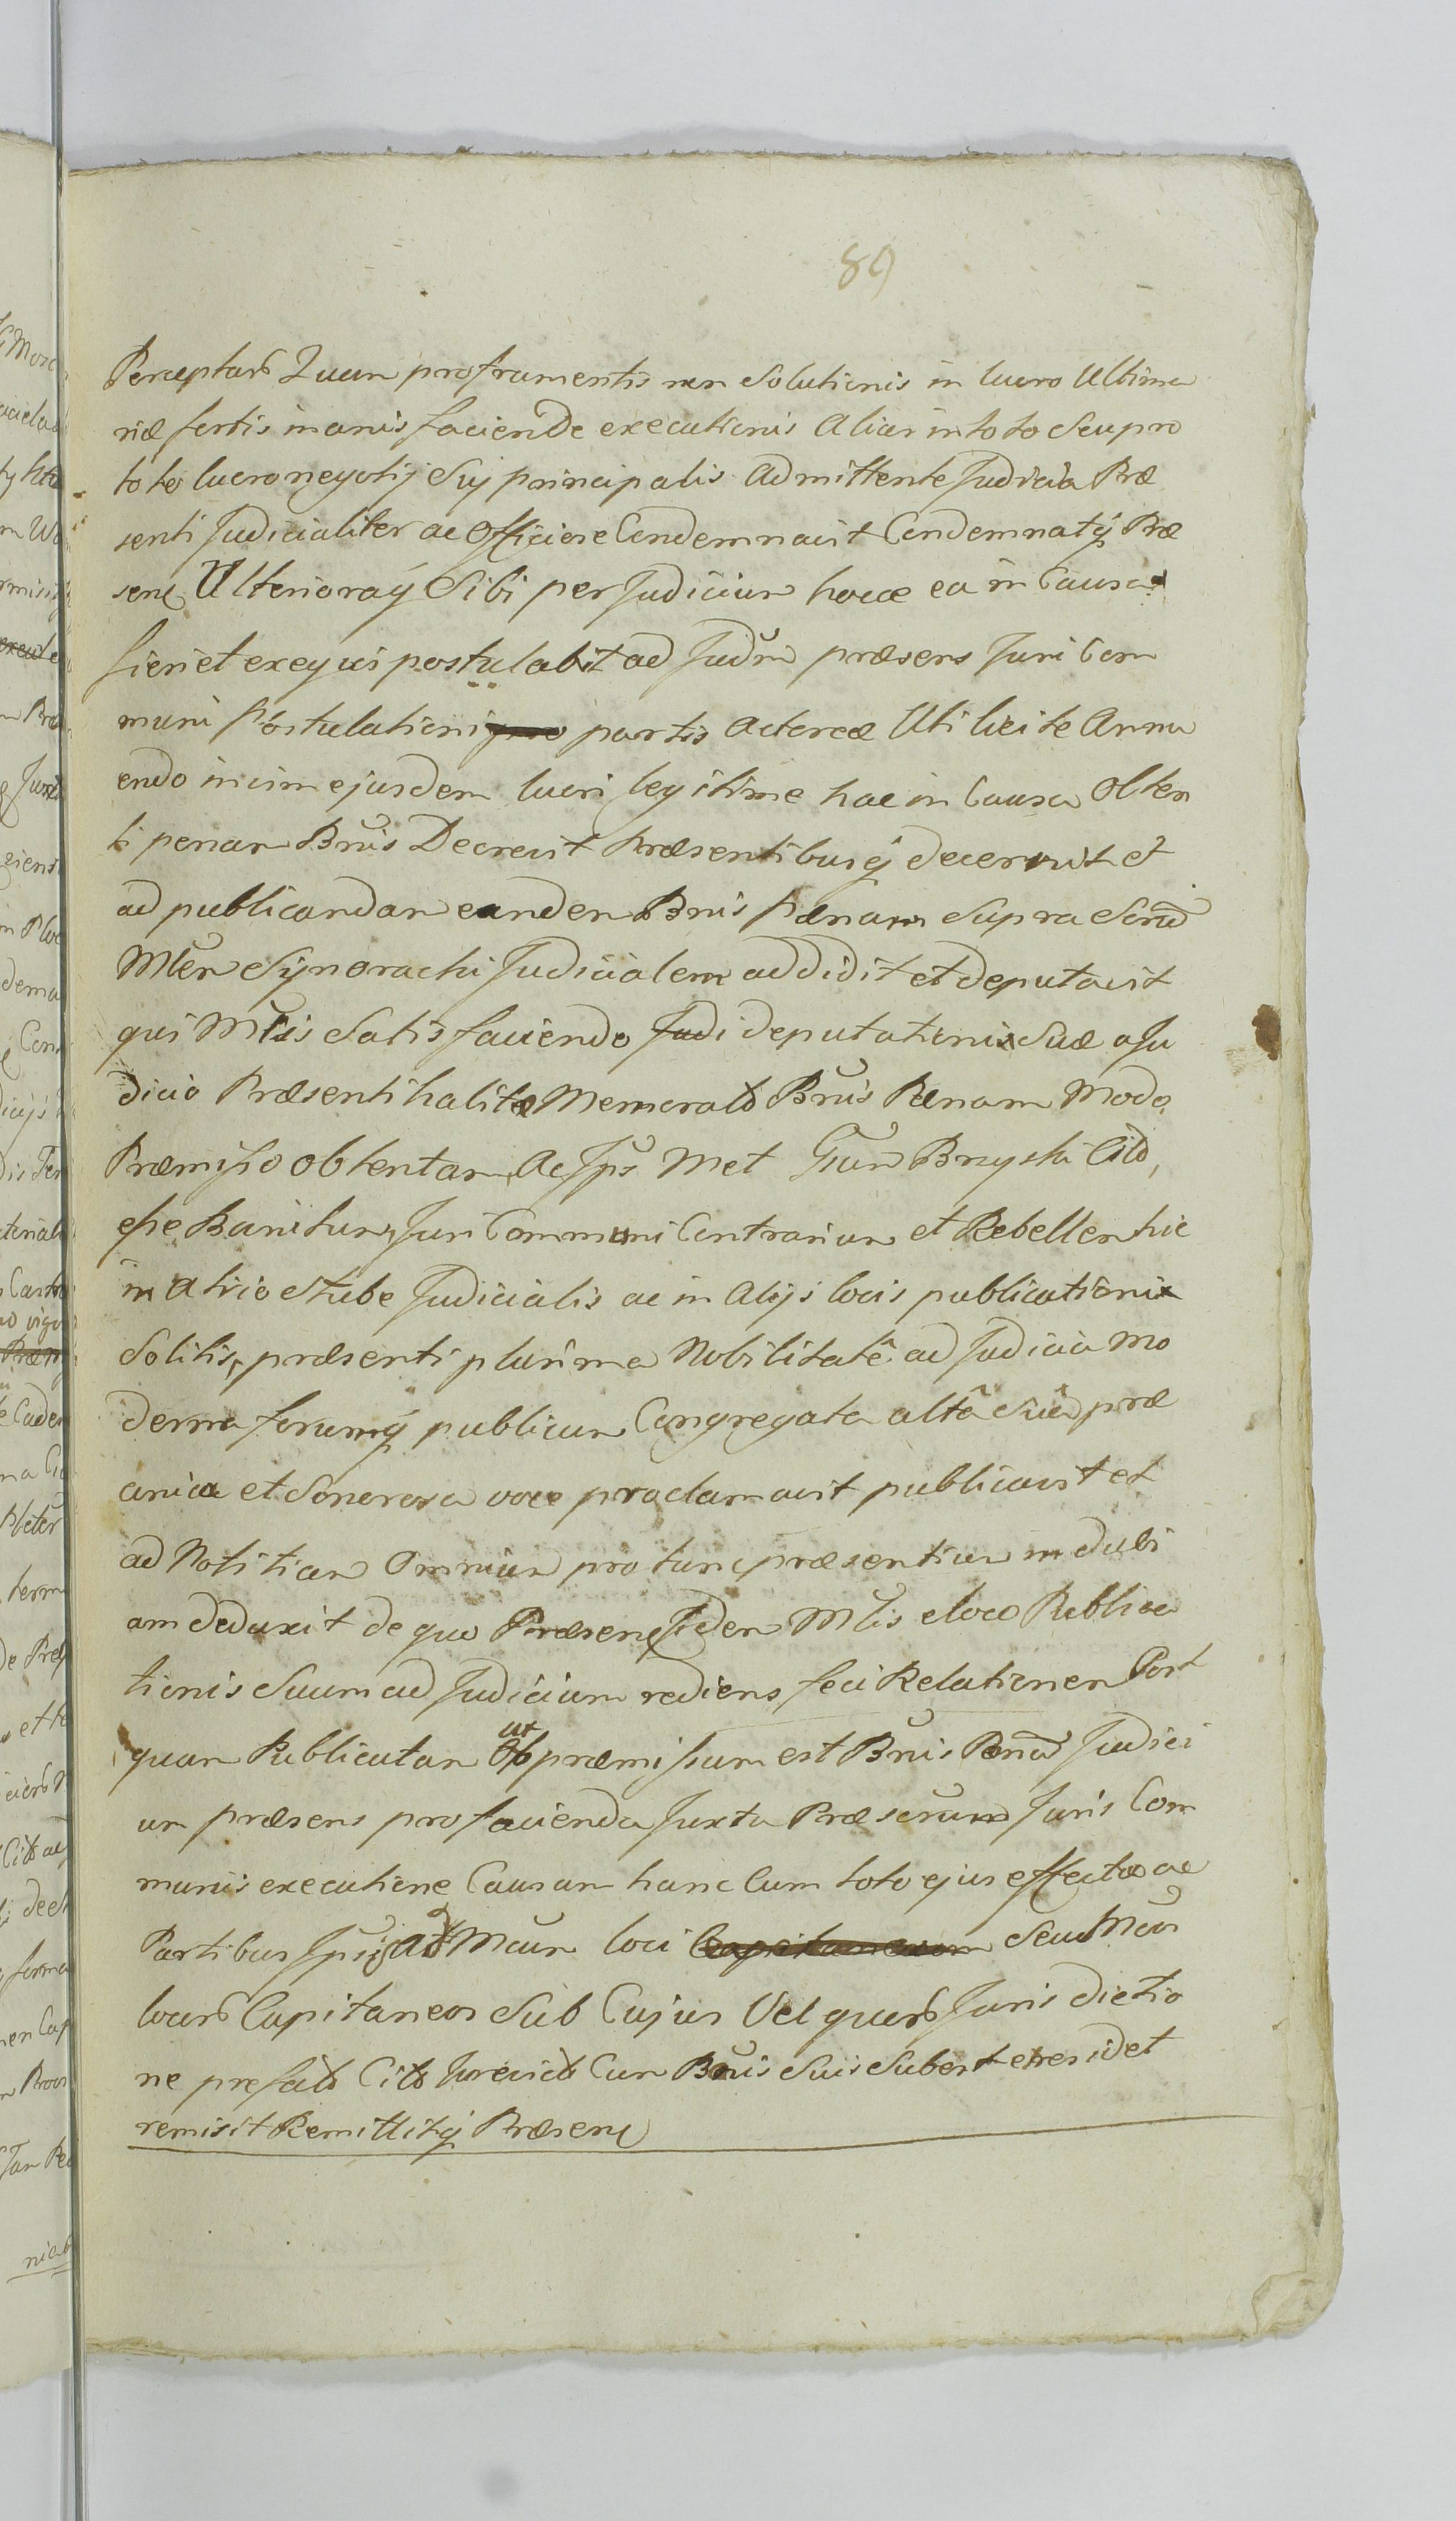 89
Perceptarũ Quam pro frumentis non Solutionis in lucro Ultima
riæ sortis inanis faciendæ executionis Alias in toto Seu pro
toto lucro negotij Suj principalis Admittente Judicia Præ
senti Judicialiter ac Officiose Condemnavit Condemnatq Præ
sens, Ulterioraq Sibi per Judicium hocce ea in Causa
fieri et exequi postulabit ad Judm præsens Juri Com
muni Postulationi partis Actoreæ Uti licite Annu
endo in vim ejusdem lucri legitime hac in Causa Obten
ti penam Bnis Decrevit Præsentibusq decernit et
ad publicandam eandem Bnis Pænam Supra Scrip
Mlem Synoracki Judicialem addidit et deputavit
qui Mlis Satisfaciendo deputationi Suæ a Ju
dicio Præsenti habitæ Memorato Bnis Pænam Modo
Præmisso obtentam, Ac Ips Met Gsum Bryski Citò,
esse Banitum, Juri Communi Contrarium et Rebellem hic
in Atrio Stubæ Judicialis ac in Alijs locis publicationi
Solitis, præsenti plurima Nobilitate ad Judicia mo
derna forumq publicum Congregata altâ Suâ præ
conica et Sonorosa voce proclamavit publicavit et
ad Notitiam Omnium pro tunc præsentium indubi
am deduxit de quo Præsens Idem Mlis e loco Publica
tionis Suum ad Judicium rediens feci Relationem Post
quam Publicatam ut præmissum est Bnis Pænam Judici
um præsens pro facienda Juxta Præscrum Juris Com
munis executione Causam hanc Cum toto ejus effectu ac
Partibus Ipsis Ad Mcum loci Seu Mcos
locorũ Capitaneos Sub Cujus Vel quorũ Juris dictio
ne prefatũ Citũ Jurevictũ Cum Bnis Suis Subest et residet
remisit Remittitq Præsens